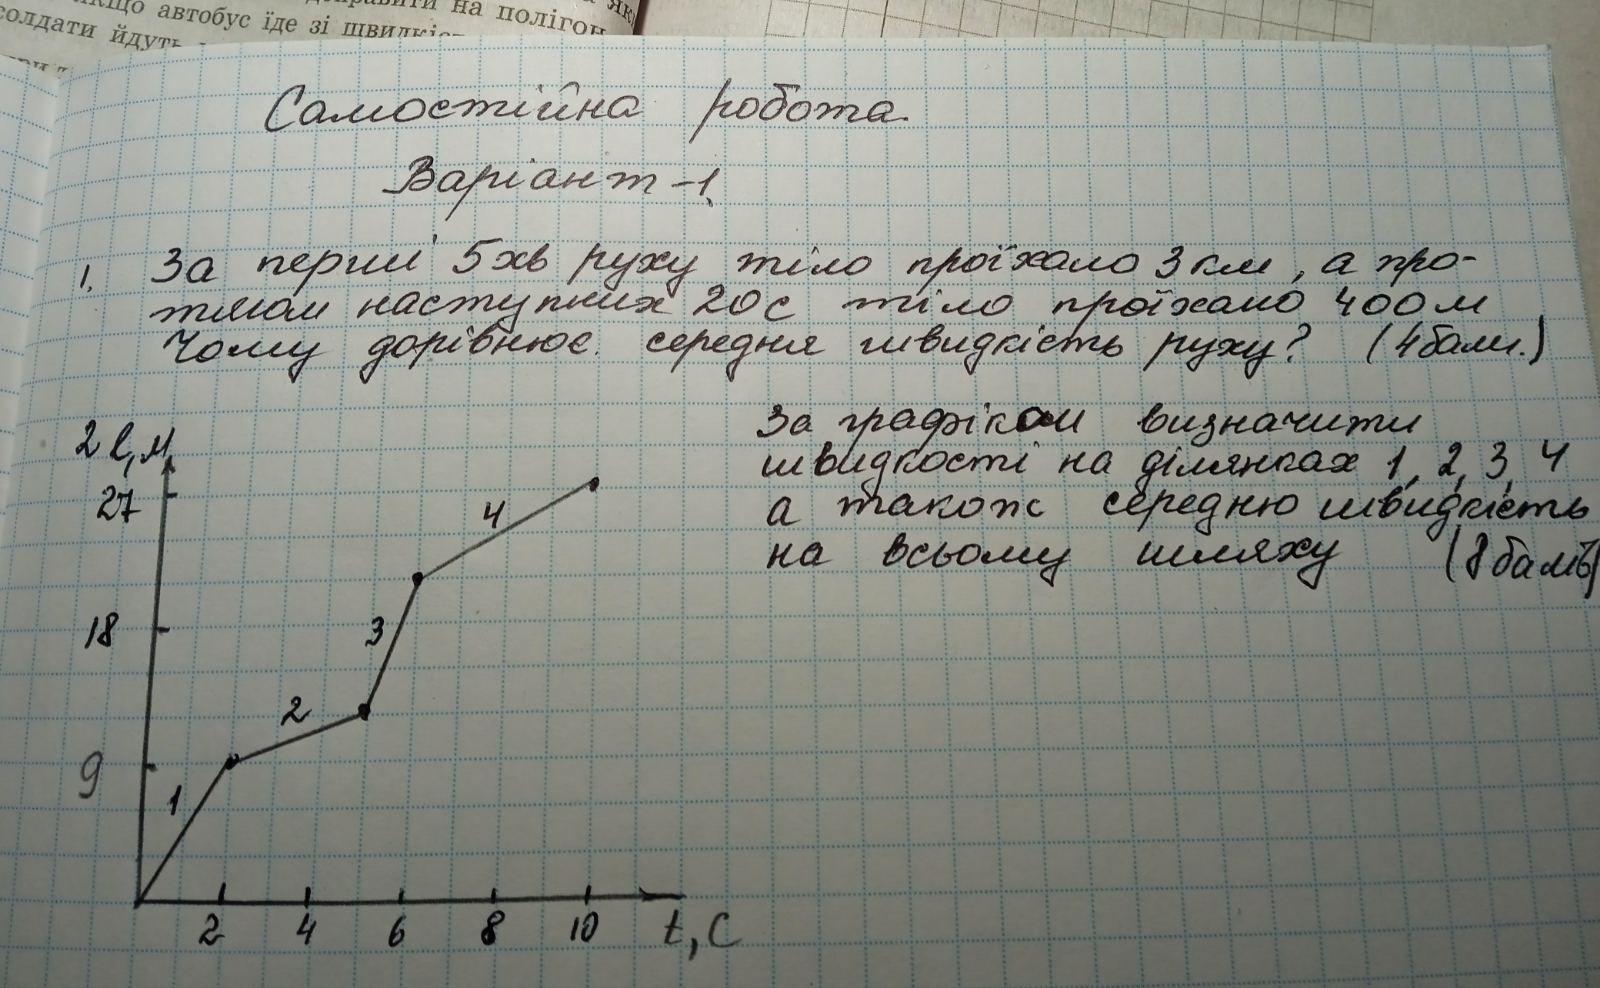 якщо автобус їде зі швидкіс
на полігон
солдати йдуть
Самостійна робота.
Варіант-1
1. За перші 5хв руху тіло проїхало 3км, а про-
тягом наступних 20с тіло проїхало 400м
Чому дорівнює середня швидкість руху? (4бали.)
За графіком визначити
швидкості на ділянках 1, 2, 3, 4
а також середню швидкість
на всьому шляху (8балів)
2 l, м
27
18
9
1
2
3
4
2 4 6 8 10 t, c